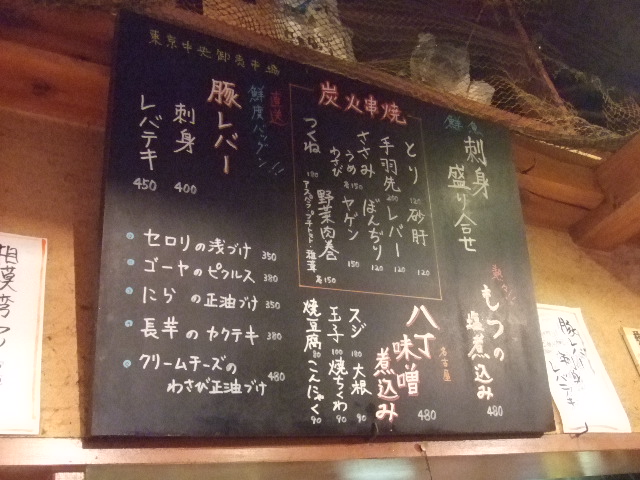 鮮魚
刺身
盛り合せ
もつの
塩煮込み
480
炭火串焼
とり 120
砂肝 120
手羽先 200
レバー 120
ささみ
うめ
わさび
各150
ぼんぢり 120
ヤゲン 150
つくね 180
野菜肉巻
アスパラ・プチトマト・椎茸
各150
名古屋
八丁
味噌
煮込み
480
スジ 180
大根 90
玉子 100
焼ちくわ 90
焼豆腐 80
こんにゃく 90
東京中央卸売市場
直送
鮮度バツグン!!
豚レバー
刺身 400
レバテキ 450
セロリの浅づけ 350
ゴーヤのピクルス 380
にらの正油づけ 350
長芋のカクテキ 380
クリームチーズの
わさび正油づけ 480
豚レバー
刺身
レバテキ
相模湾